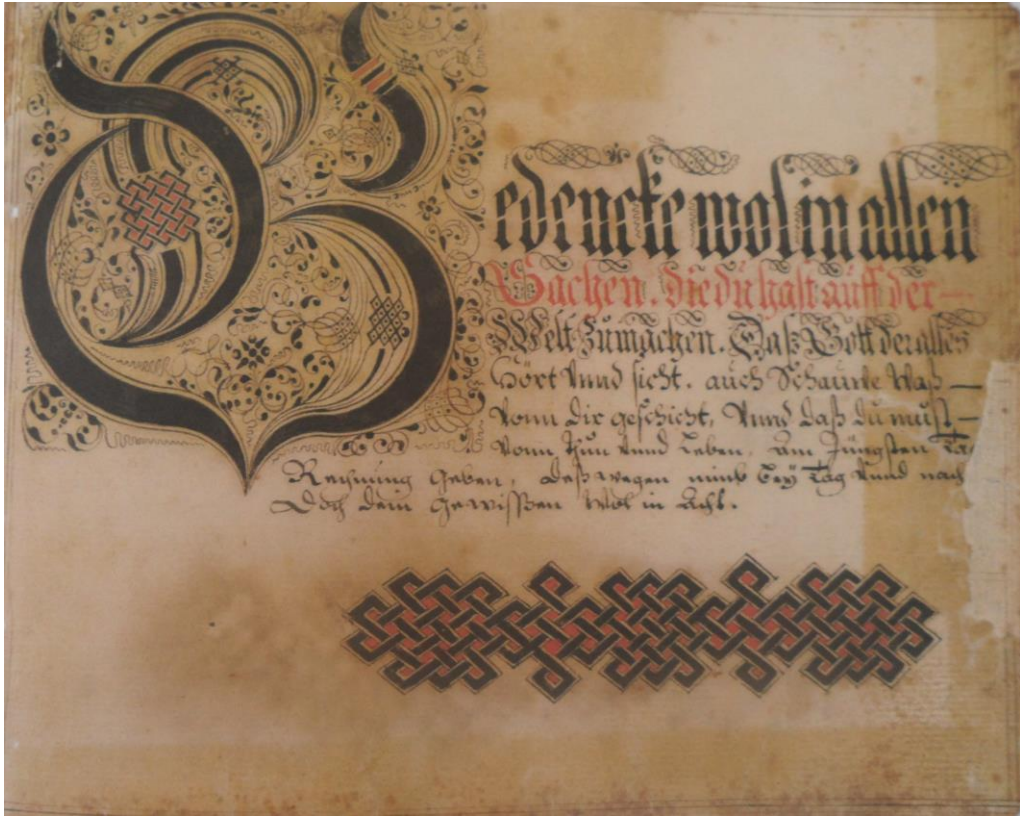 Bedencke wol in allen
Sachen. die du hast auff der
Welt Zumachen. Daß Gott der alles
Hört Vnnd sicht. auch Schauwe Waß
Vonn dir geschicht, Vnnd daß du must
Vonn Thun Vnnd Leben, am Jüngsten Tag
Rechnung Geben, deßwegen nimb beÿ Tag Vnnd nach
Doch dein Gewissßen Wol in Acht.